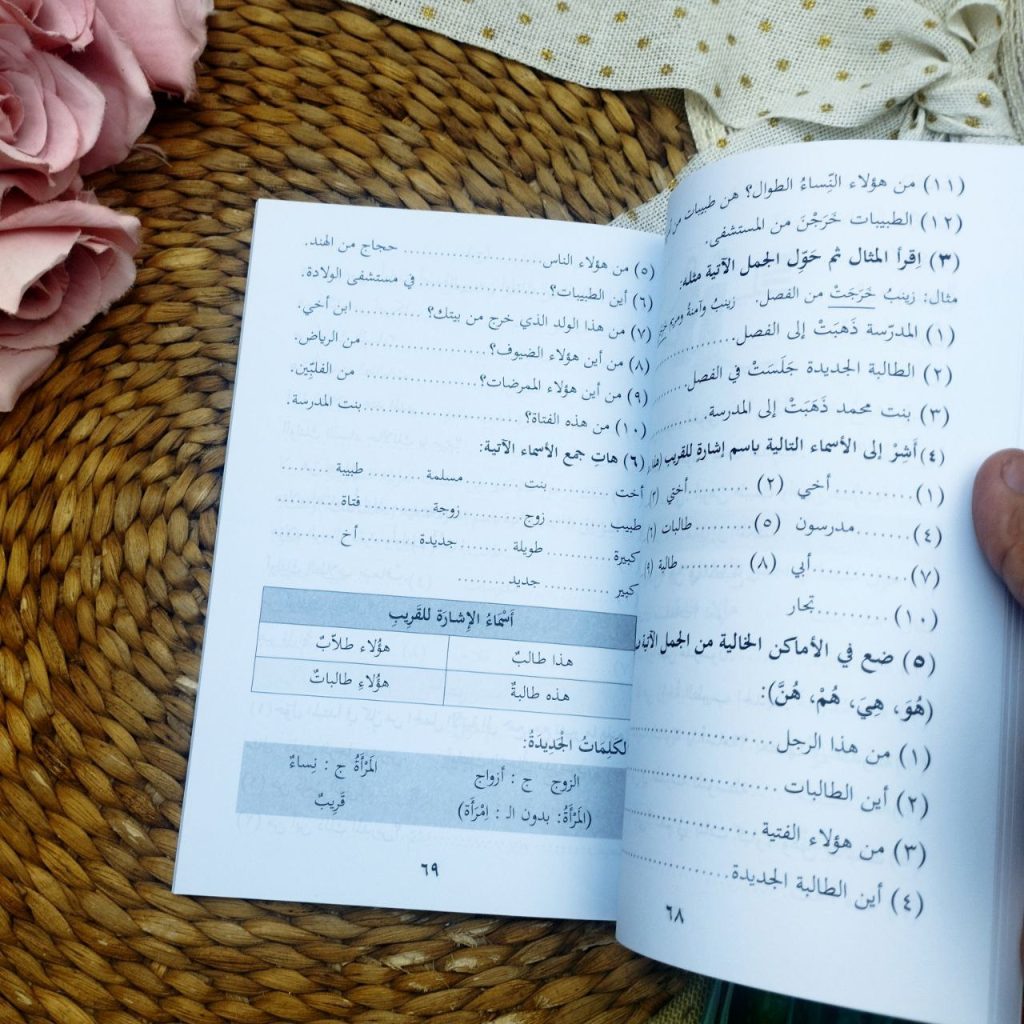 (١١) من هؤلاء النِّساءُ الطوال؟ هن طبيبات من
(١٢) الطبيبات خَرَجْنَ من المستشفى.
(٣) اِقرأ المثال ثم حَوِّل الجمل الآتية مثله:
مثال: زينبُ خَرَجَتْ من الفصل. زينبُ وآمنةُ ومريم
(١) المدرّسة ذَهَبَتْ إلى الفصل..........
(٢) الطالبة الجديدة جَلَسَتْ في الفصل..........
(٣) بنت محمد ذَهَبَتْ إلى المدرسة..........
(٤) أَشِرْ إلى الأسماء التالية باسم إشارةٍ للقريب
(١)..........أخي (٢)..........أختي (٣)
(٤)........مدرسون (٥)........طالبات (٦)
(٧)............أبي (٨)..........طالبة (٩)
(١٠)..........تجار
(٥) ضع في الأماكن الخالية من الجمل الآتية
(هُوَ، هِيَ، هُمْ، هُنَّ):
(١) من هذا الرجل..........
(٢) أين الطالبات..........
(٣) من هؤلاء الفتية..........
(٤) أين الطالبة الجديدة..........
٦٨
(٥) من هؤلاء الناس....................حجاج من الهند.
(٦) أين الطبيبات؟....................في مستشفى الولادة.
(٧) من هذا الولد الذي خرج من بيتك؟..........ابن أخي.
(٨) من أين هؤلاء الضيوف؟....................من الرياض.
(٩) من أين هؤلاء الممرضات؟....................من الفلبِّين.
(١٠) من هذه الفتاة؟....................بنت المدرسة.
(٦) هاتِ جمع الأسماء الآتية:
أخت..........بنت..........مسلمة..........طبيبة..........
طبيب..........زوج..........زوجة..........فتاة..........
كبيرة..........طويلة..........جديدة..........أخ..........
كبير..........جديد..........
أَسْمَاءُ الإِشَارَة للقَرِيبِ
هذا طالبٌ هؤُلاء طلاّبٌ
هذه طالبةٌ هؤُلاءِ طالباتٌ
لكَلِمَاتُ الْجَدِيدَةُ:
الزوج ج : أزواج المَرْأَةُ ج : نِساءٌ
(المَرْأَةُ: بدون الـ : اِمْرَأَة) قَرِيبٌ
٦٩